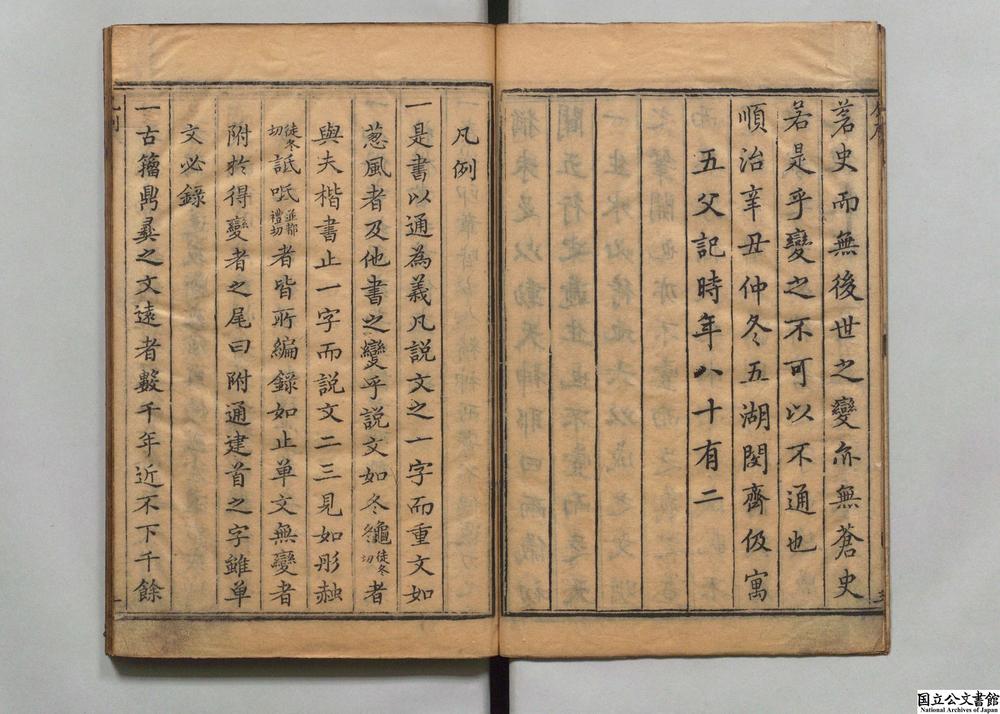 蒼史而無後世之變亦無蒼史
若是乎變之不可以不通也
順治辛丑仲冬五湖閔齊伋寓
五父記時年八十有二
凡例
一是書以通為義凡説文之一字而重文如
蔥風者及他書之變乎説文如冬䰲徒冬切者
與夫楷書止一字而説文二三見如彤赨
徒冬切詆呧並都禮切者皆所編録如止单文無變者
附於得變者之尾曰附通建首之字雖单
文必録
一古籀鼎彝之文遠者數千年近不下千餘
国立公文書館
National Archives of Japan